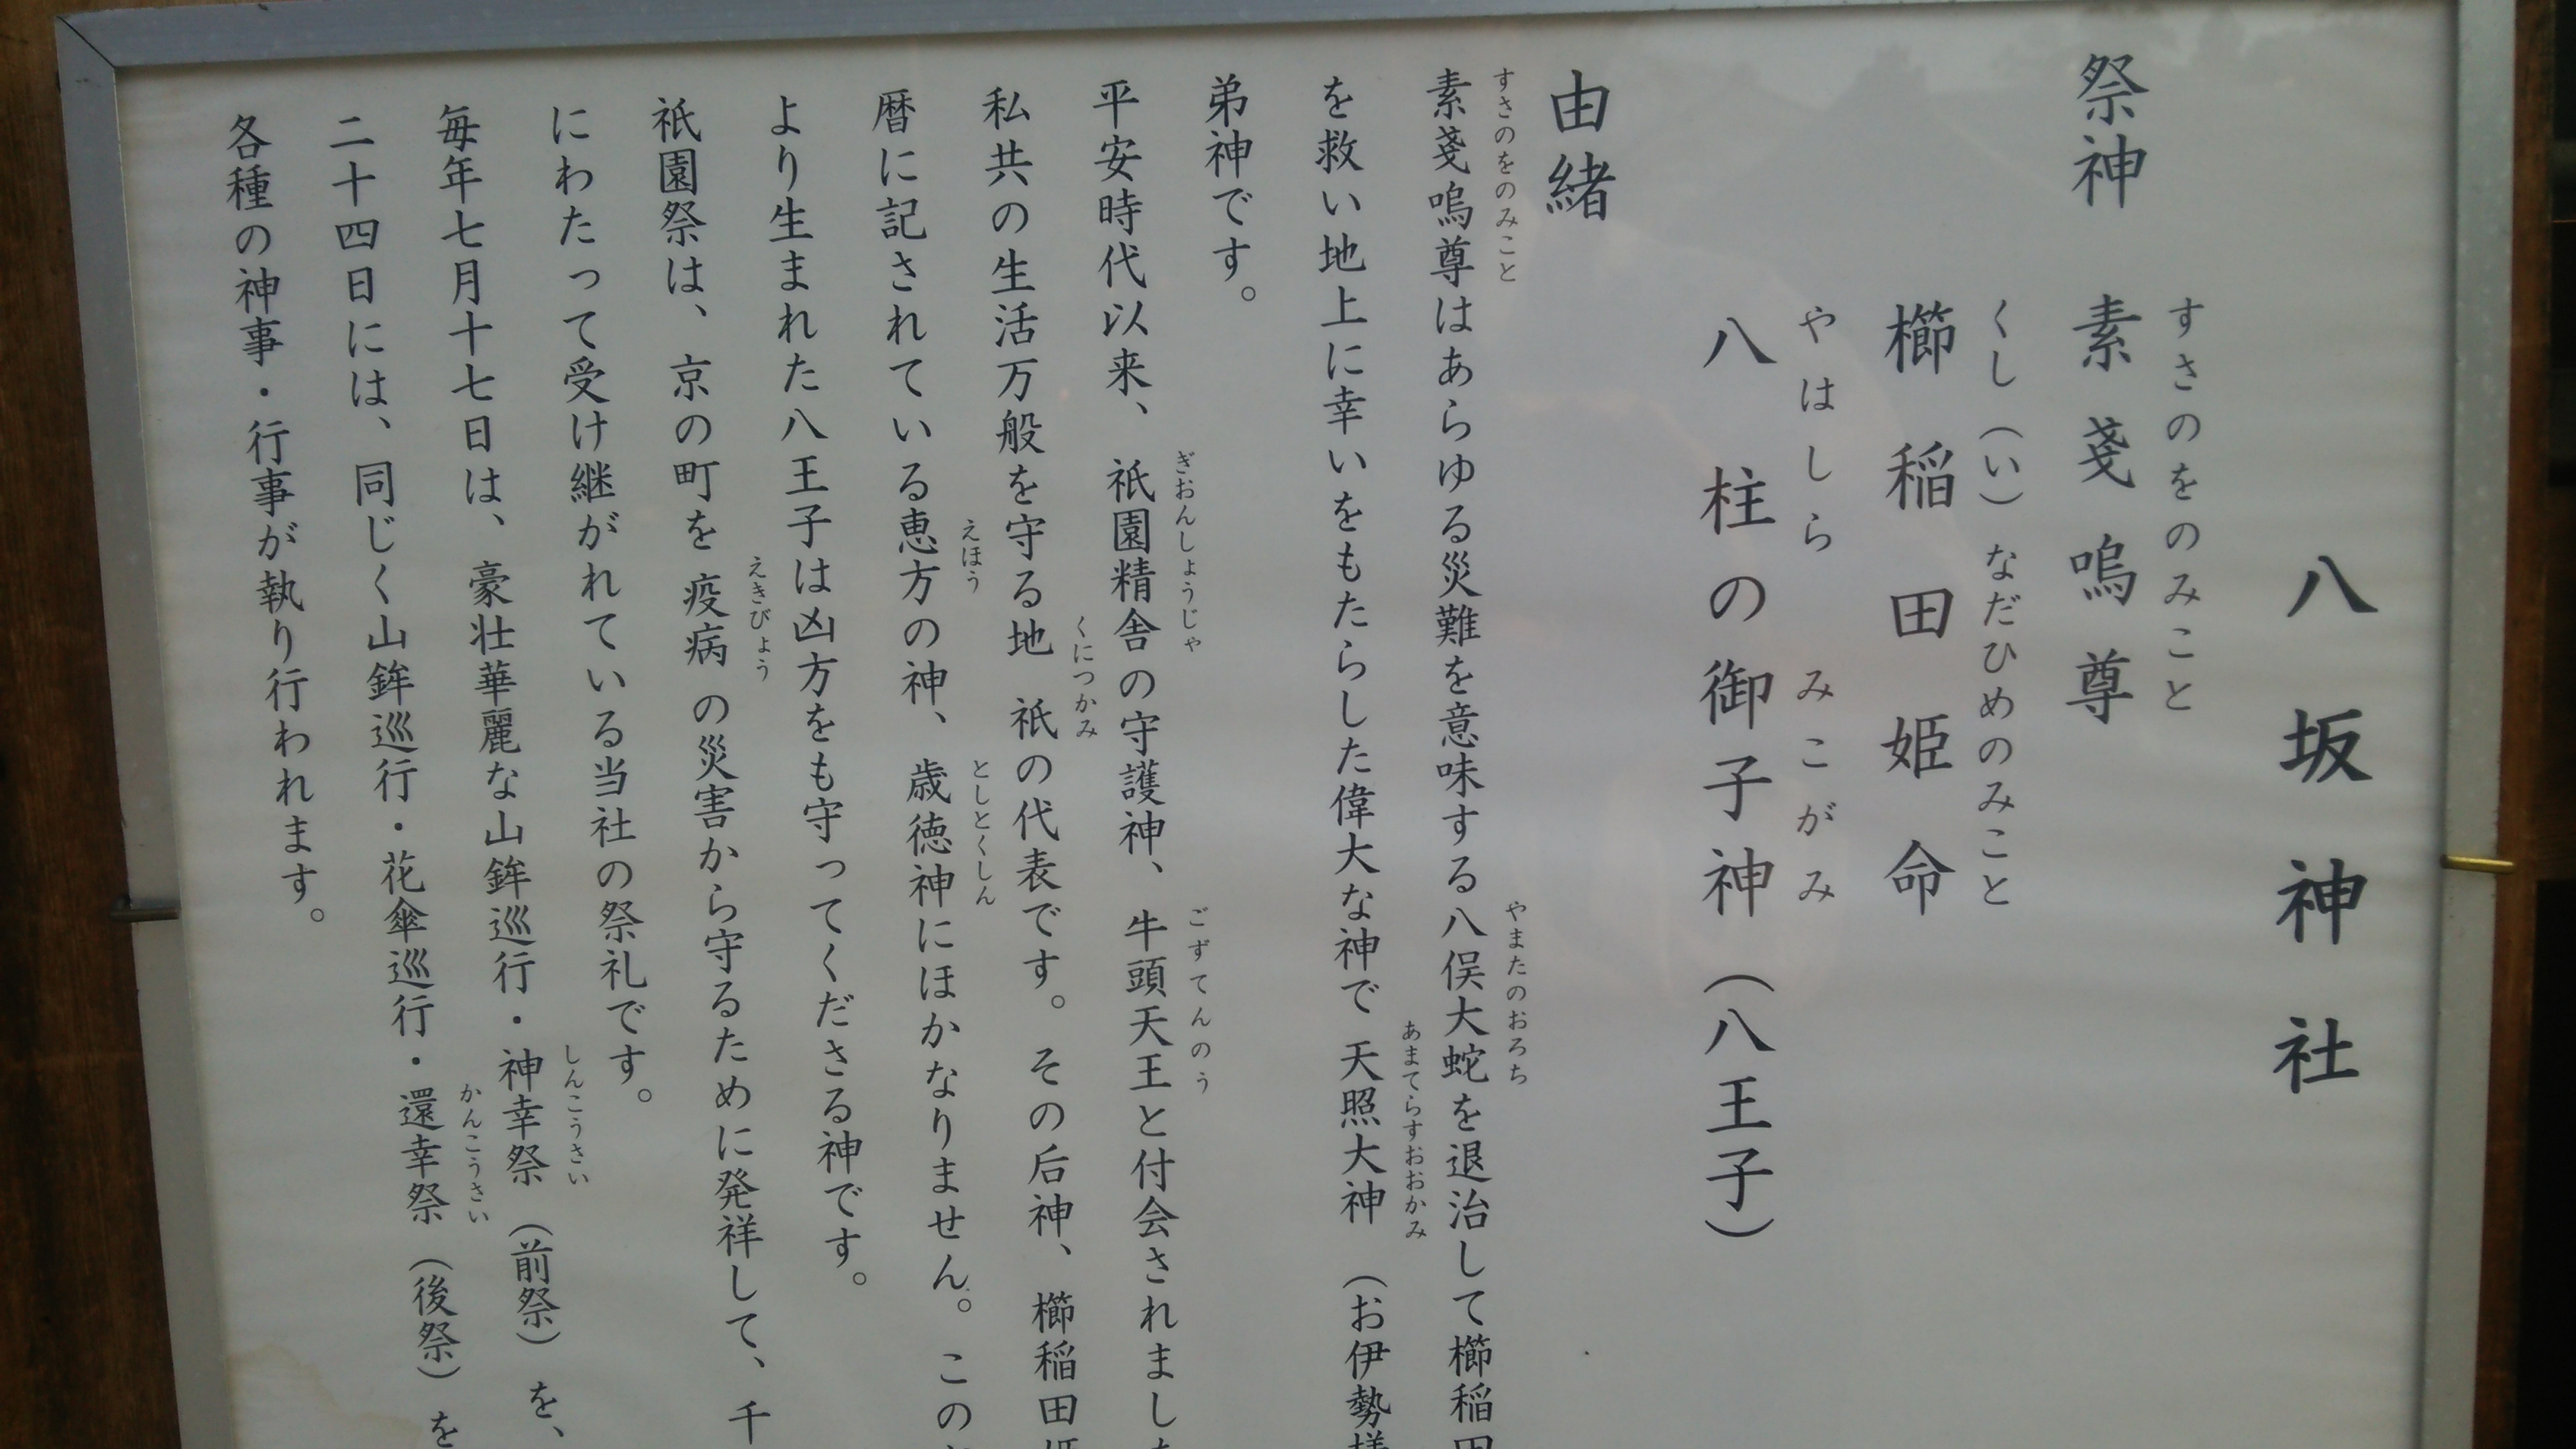 八坂神社
祭神 素戔嗚尊
すさのをのみこと
櫛稲田姫命
くし（い）なだひめのみこと
八柱の御子神（八王子）
やはしら みこがみ
由緒
素戔嗚尊はあらゆる災難を意味する八俣大蛇を退治して櫛稲田
すさのをのみこと やまたのおろち
を救い地上に幸いをもたらした偉大な神で天照大神（お伊勢様
あまてらすおおかみ
弟神です。
平安時代以来、祇園精舎の守護神、牛頭天王と付会されました
ぎおんしょうじゃ ごずてんのう
私共の生活万般を守る地祇の代表です。その后神、櫛稲田姫
くにつかみ
暦に記されている恵方の神、歳徳神にほかなりません。この
えほう としとくしん
より生まれた八王子は凶方をも守ってくださる神です。
祇園祭は、京の町を疫病の災害から守るために発祥して、千
えきびょう
にわたって受け継がれている当社の祭礼です。
毎年七月十七日は、豪壮華麗な山鉾巡行・神幸祭（前祭）を、
しんこうさい
二十四日には、同じく山鉾巡行・花傘巡行・還幸祭（後祭）を
かんこうさい
各種の神事・行事が執り行われます。